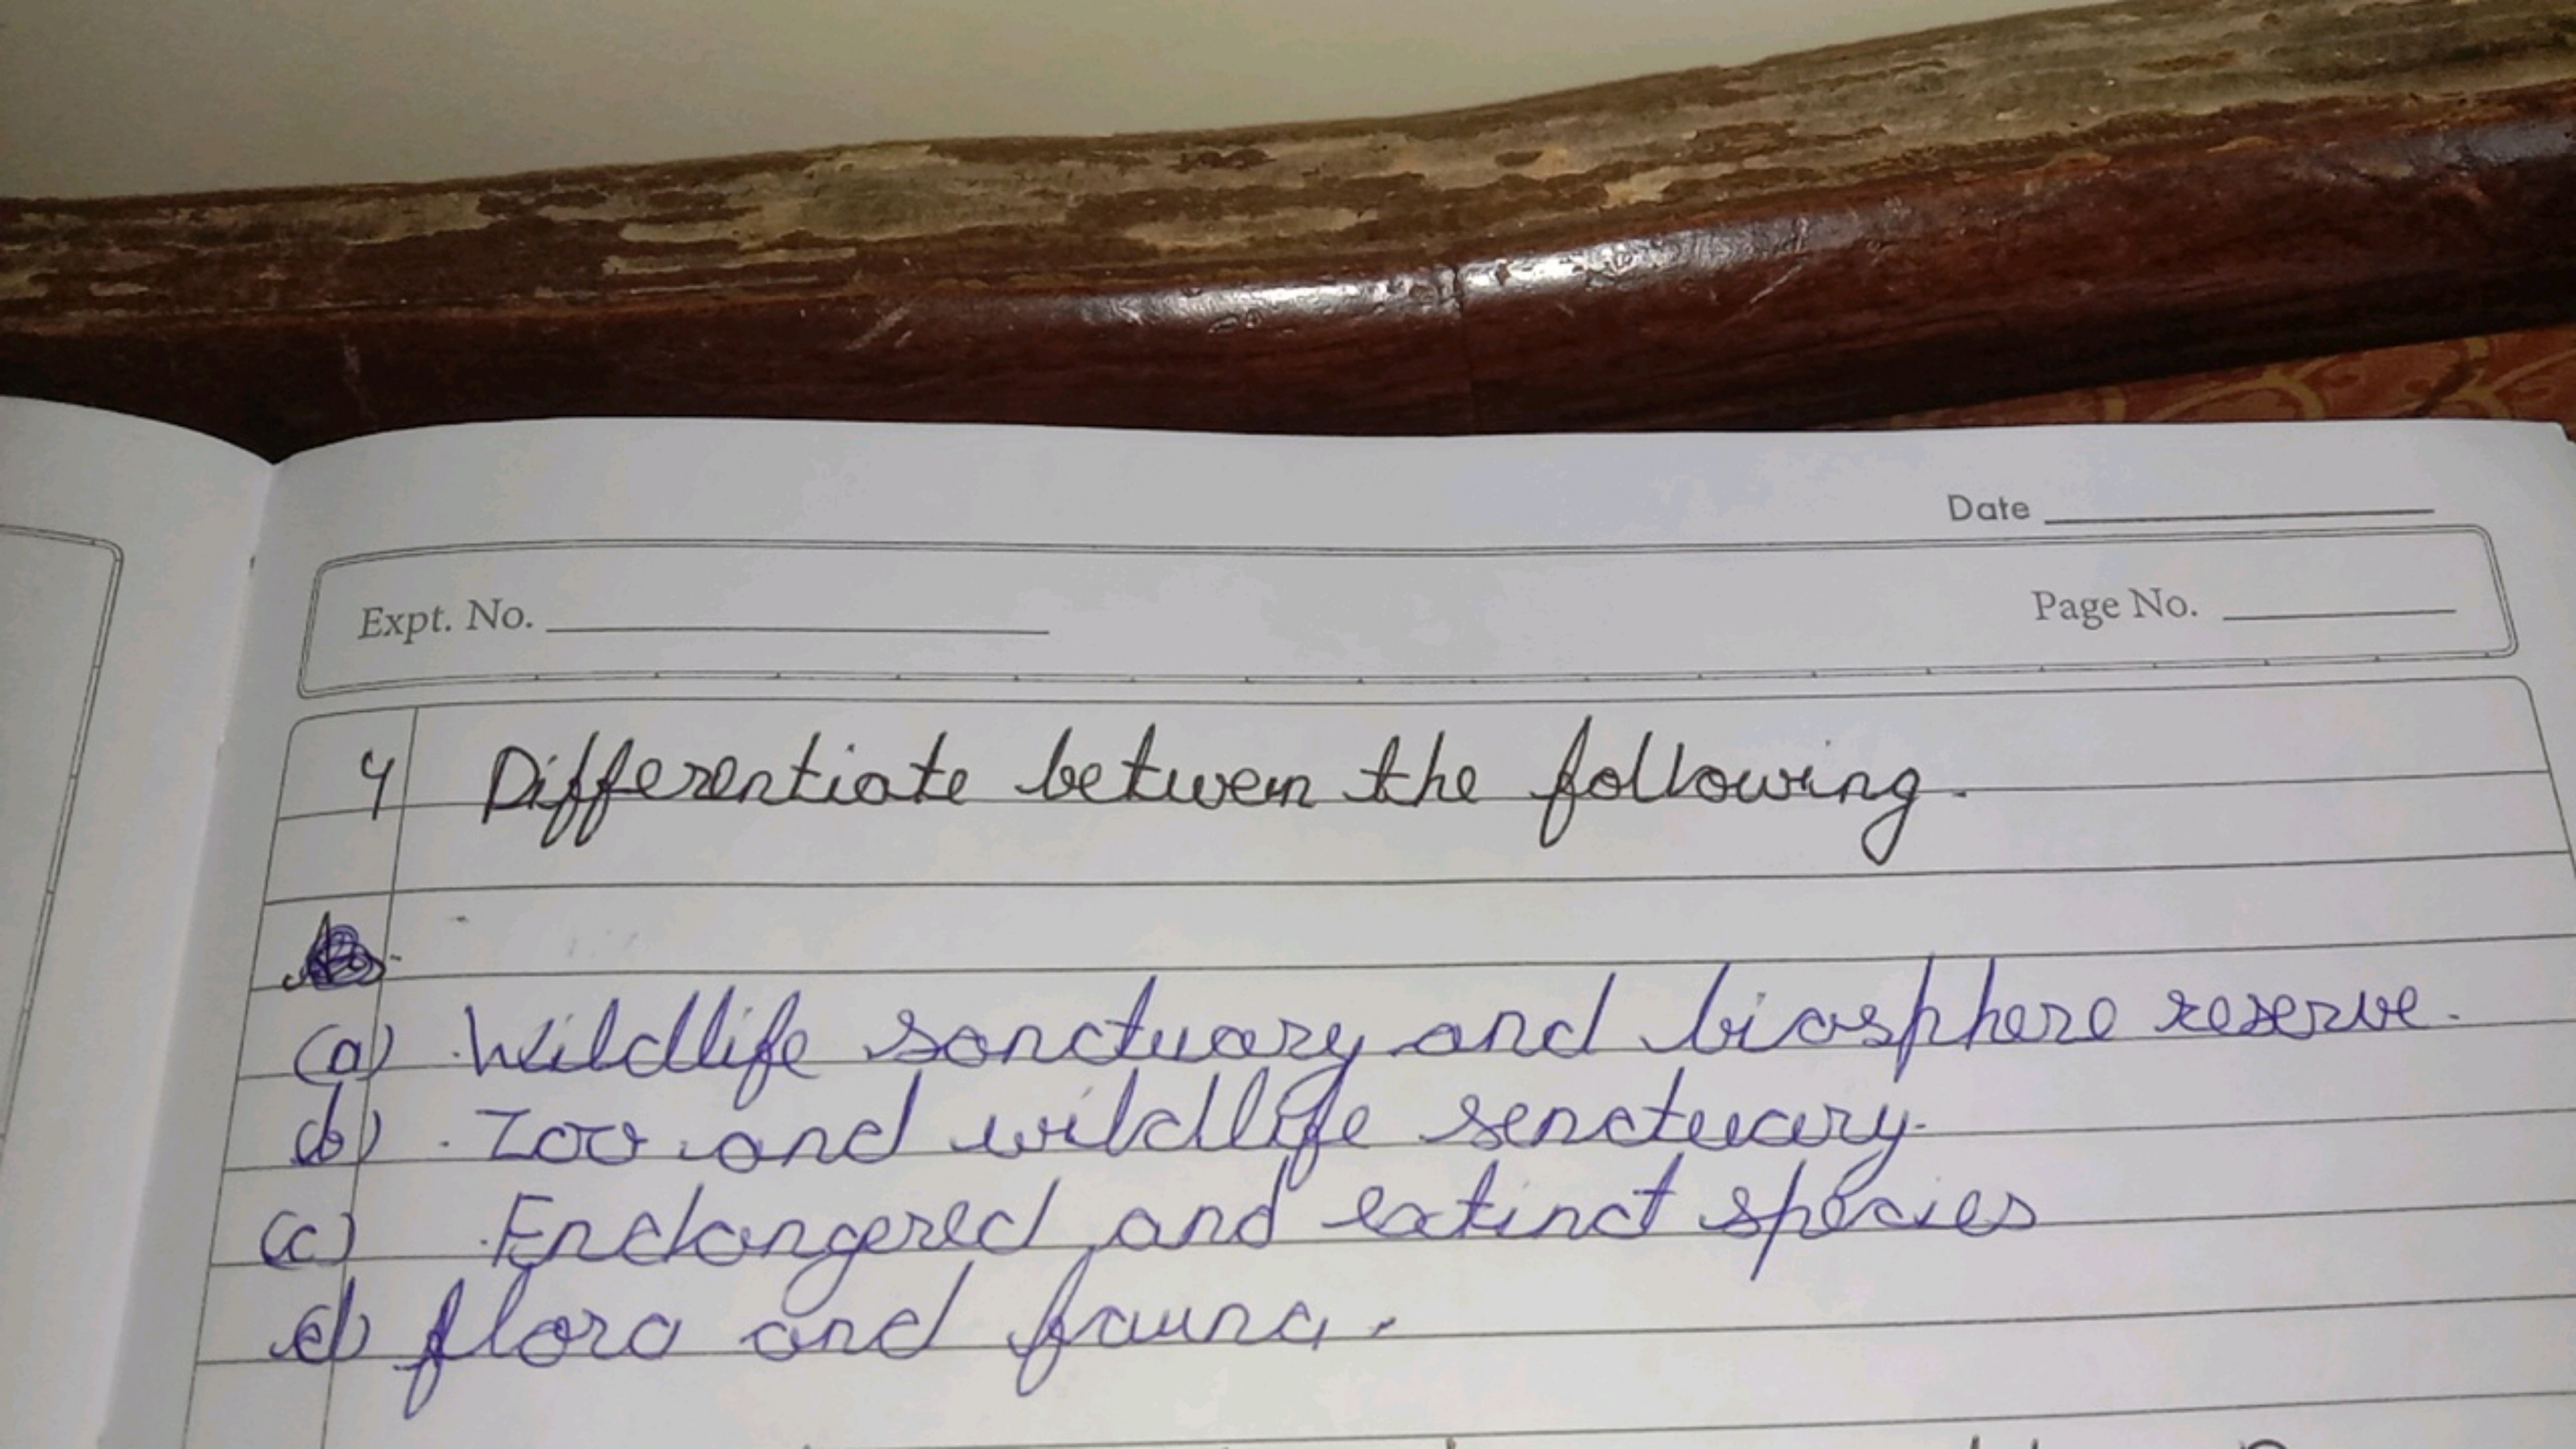 Date
Expt. No.
Page No.
4 Differentiate between the following.
(a) Wildlife sanctuary and biosphere reserve.
(b) Zoo and wildlife senctuary.
(c) Endangered and extinct species
d) flora and fauna.